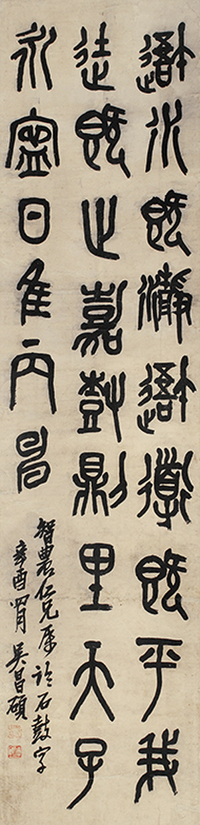 吾水既瀞吾導既平我
徒既止嘉尌則里天子
永寧日隹丙申
智農仁兄屬臨石鼓字
辛酉四月吳昌碩